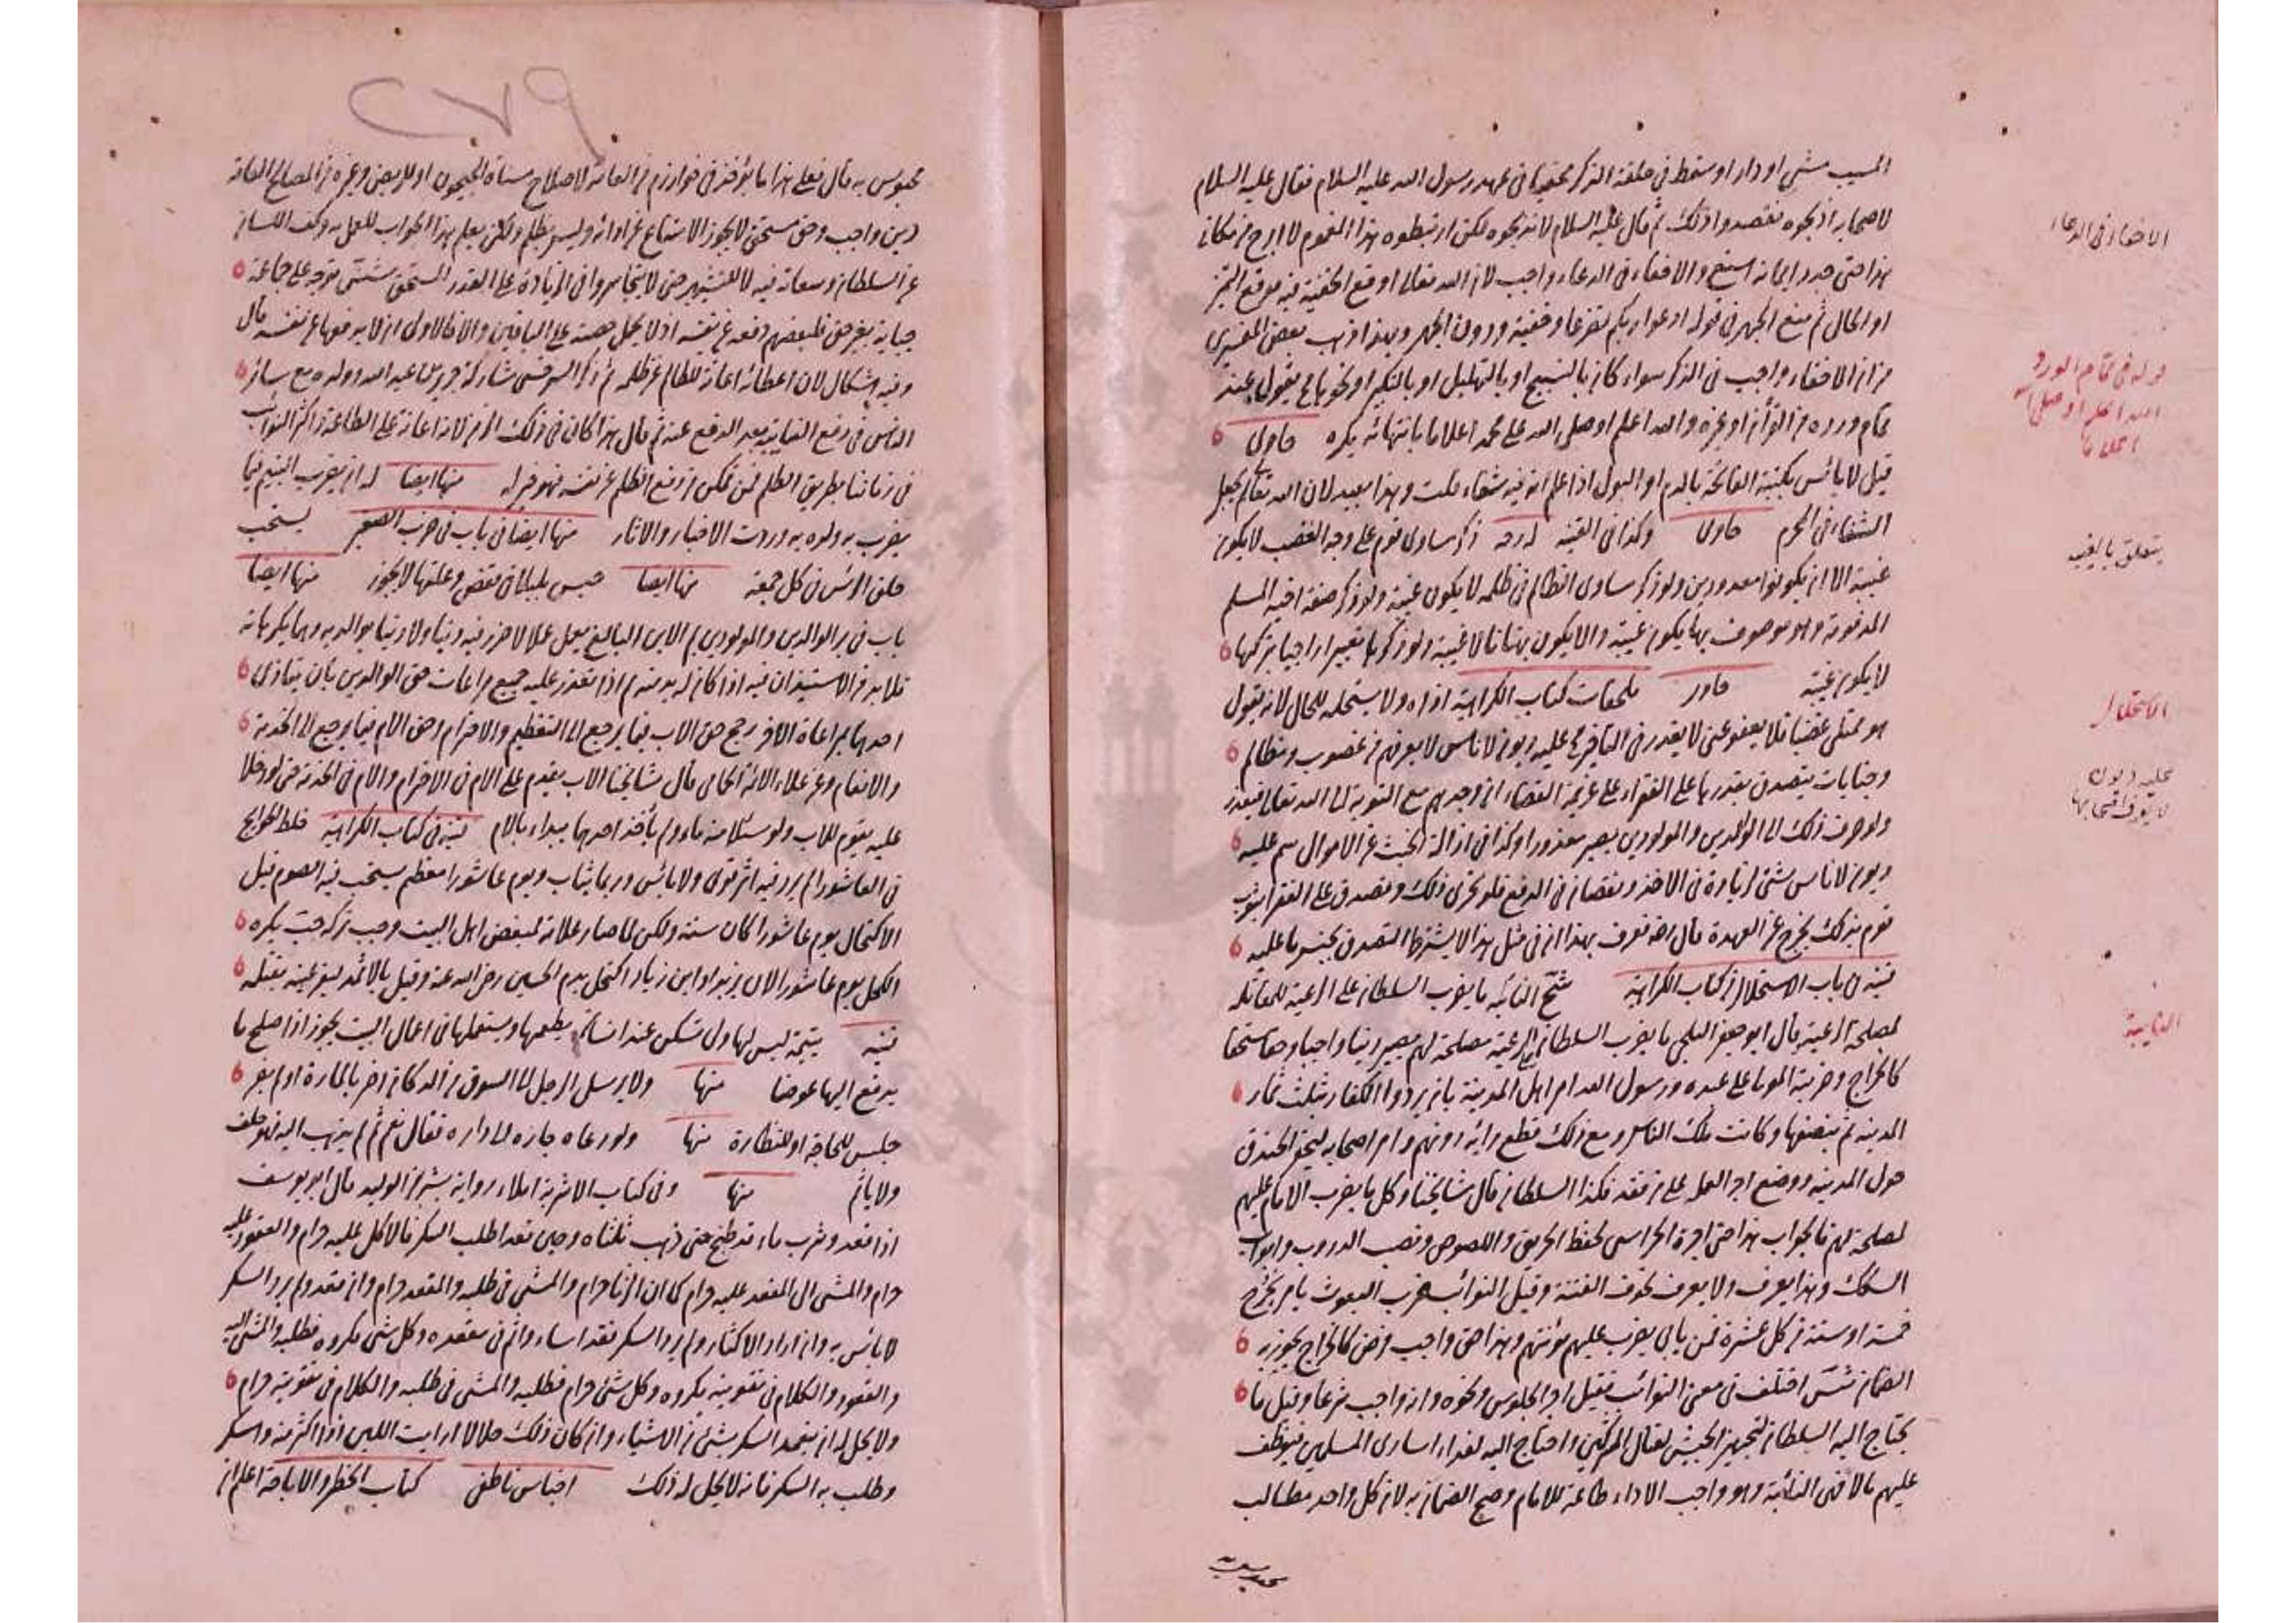 المسيب مشى او دار او سقط في حلقة الذكر في عهد رسول الله عليه السلام فقال عليه السلام
لاصحابه اذبحوه فقصدوا ذلك ثم قال عليه السلام لا تذبحوه لكن اربطوه
هذا حتى جدد ايمانه والاخفاء في الدعاء واجب لان الله تعالى اوقع الخفية فيه موقع التميز
او الحال ثم منع الجهر في قوله ادعوا ربكم تضرعا وخفية ودون الجهر وبهذا ذهب بعض المفسرين
من ان الاخفاء واجب في الذكر سواء كان بالتسبيح او بالتهليل او بالتكبير او نحوها يقول عند
تمام ورده من القرآن او غيره والله اعلم او صلى الله على محمد اعلاما بانتهائه يكره حاوى
قيل لا بأس بكتبة الفاتحة بالدم او البول اذا علم ان فيه شفاء قلت وهذا بعيد لان الله تعالى لم يجعل
الشفاء في المحرم حاوى وكذا في القنية ذكر مساوى قوم على وجه الغضب لا يكون
غيبة الا ان يكونوا معدودين ولو ذكر مساوى الظالم في ظلمه لا يكون غيبة ولو ذكر صفة اخيه المسلم
المذمومة وهو موصوف بها يكون غيبة والا يكون بهتانا لا غيبة ولو ذكرها تعييرا راجيا تركها
لا يكون غيبة حاوى ملحقات كتاب الكراهية اذاه ولا يستحله للحال لانه يقول
هو ممتلئ غضبا فلا يعفو عني لا يعذر في التأخير عليه ديون لاناس لا يعرفهم من غصوب ومظالم
وجنايات يتصدق بقدرها على الفقراء على عزيمة القضاء ان وجدهم مع التوبة الى الله تعالى فيعذر
ولو صرف ذلك الى الوالدين والمولودين يصير معذورا وكذا في ازالة الخبث عن الاموال عليه
ديون لاناس شتى لزيادة في الاخذ ونقصان في الدفع فلو تحرى ذلك وتصدق على الفقراء بثوب
قوم بذلك يخرج عن العهدة قال فعرف بهذا ان في مثل هذا لا يشترط التصدق بجنس ما عليه
قنية في باب الاستحلال من كتاب الكراهية النائبة ما يضرب السلطان على الرعية للمقاتلة
لمصلحة الرعية قال ابو جعفر البلخي ما يضرب السلطان على الرعية مصلحة لهم يصير دينا واجبا وحقا مستحقا
كالخراج وضريبة المولى على عبده ورسول الله امر اهل المدينة بان يردوا الكفار بثلث ثمار
المدينة ثم بنصفها وكانت ملك الناس ومع ذلك قطع رأيه دونهم وامر اصحابه بحفر الخندق
حول المدينة ووضع اجر العملة على من قعد فكذا السلطان قال مشايخنا وكل ما يضرب الامام عليهم
لمصلحة لهم فالجواب هذا حتى اجرة الحراسين لحفظ الطريق واللصوص ونصب الدروب وابواب
السكك وهذا يعرف ولا يعرف خوف الفتنة وقيل النوائب ضرب البعوث يأمر بخروج
خمسة او ستة من كل عشرة فمن يأبى يضرب عليهم مؤنتهم وهذا حق واجب وفرض كالخراج يجوز به
الضمان اختلف في معنى النوائب فقيل اجر الجلوس ونحوه وانه واجب شرعا وقيل ما
يحتاج اليه السلطان لتجهيز الجيش لقتال المشركين واحتاج اليه لفداء اسارى المسلمين فيوظف
عليهم مالا فهي النائبة وهو واجب الاداء طاعة للامام وصح الضمان به لان كل واحد مطالب
الاخفاء في الدعاء
قوله في تمام الورد
الله اعلم او صلى الله
اعلاما
يتعلق بالغيبة
الاستحلال
عليه ديون
لا يعرف اصحابها
النايبة
٢٧٩
محبوس به قال فعلى هذا ما يؤخذ في خوارزم من العامة لاصلاح مسناة الجيحون او للربض وغيره من المصالح العامة
دين واجب وحق مستحق لا يجوز الامتناع عن ادائه وليس بظلم ولكن يعلم هذا الجواب للعمل به وكف اللسان
عن السلطان وسعاته فيه لا للتشهير حتى لا يتجاسروا في الزيادة على القدر المستحق توجه على جماعة
جباية بغير حق فلبعضهم دفعه عن نفسه اذا لم يحمل حصته على الباقين والا فالاولى ان لا يدفعها عن نفسه قال
وفيه اشكال لان اعطائه اعانة للظالم على ظلمه ثم ذكر السرخسي مشاركة جرير بن عبد الله وولده مع سائر
الناس في دفع النائبة بعد الدفع عنه ثم قال هذا كان في ذلك الزمن لانه اعانة على الطاعة واكثر النوائب
في زماننا بطريق الظلم فمن تمكن من دفع الظلم عن نفسه فهو خير له منها ايضا له ان يضرب اليتيم فيما
يضرب به ولده به وردت الاخبار والاثار منها ايضا في باب في ضرب الصغير يستحب
حلق الرأس في كل جمعة منها ايضا حبس بلبلا في قفص وعلفها لا يجوز منها ايضا
باب في بر الوالدين والمولودين الابن البالغ يعمل عملا لا ضرر فيه دينا ولا دنيا بوالديه وهما يكرهانه
فلا بد من الاستيذان فيه اذا كان له بد منه اذا تعذر عليه جميع مراعات حق الوالدين بان يتاذى
احدهما بمراعاة الاخر يرجح حق الاب فيما يرجع الى التعظيم والاحترام وحق الام فيما يرجع الى الخدمة
والانعام وعن علاء الائمة الحمامي قال مشايخنا الاب يقدم على الام في الاحترام والام في الخدمة حتى لو دخلا
عليه يقوم للاب ولو سئلا منه ماء ولم يأخذ احدهما يبدأ بالام قنية في كتاب الكراهية خلط الحوايج
في العاشورا لم يرد فيه اثر قوي ولا بأس وربما يثاب ويوم عاشورا معظم يستحب فيه الصوم قيل
الاكتحال يوم عاشورا كان سنة ولكن لما صار علامة لمبغض اهل البيت وجب تركه يكره
الكحل يوم عاشورا لان يزيد او ابن زياد اكتحل بدم الحسين رضى الله عنه وقيل بالاثمد ليقر عينه بقتله
قنية يتيمة ليس لها ولي تسكن عند انسان يطعمها ويستعملها في اعمال البيت يجوز اذا صلح ما
يدفع اليها عوضا منها ولا يرسل الرجل الى السوق من الدكان
جلس للحاجة او للنظارة منها ولو دعاه جاره الى داره فقال نعم ثم لم يذهب اليه فهو خلف
ولا يأثم منها وفي كتاب الاشربة املاء رواية بشر بن الوليد قال ابو يوسف
اذا قعد وشرب ماء قد طبخ حتى ذهب ثلثاه وحين قعد اطلب السكر فالاكل عليه حرام والقعود عليه
حرام والمشي الى المقعد عليه حرام كما ان الزنا حرام والمشي في طلبه والمقعد حرام وان قعد ولم يرد السكر
لا بأس به وان اراد الاكثار ولم يرد السكر فقد اساء واثم في مقعده وكل شئ مكروه فطلبه والمشي اليه
والقعود والكلام في تقويته مكروه وكل شئ حرام فطلبه والمشي في طلبه والكلام في تقويته حرام
ولا يحل له ان يتعمد السكر بشئ من الاشياء وان كان ذلك حلالا ارايت اللبن اذا اكثر منه واسكر
وطلب به السكر فانه لا يحل له ذلك اجناس ناطفي كتاب الحظر والاباحة اعلم ان